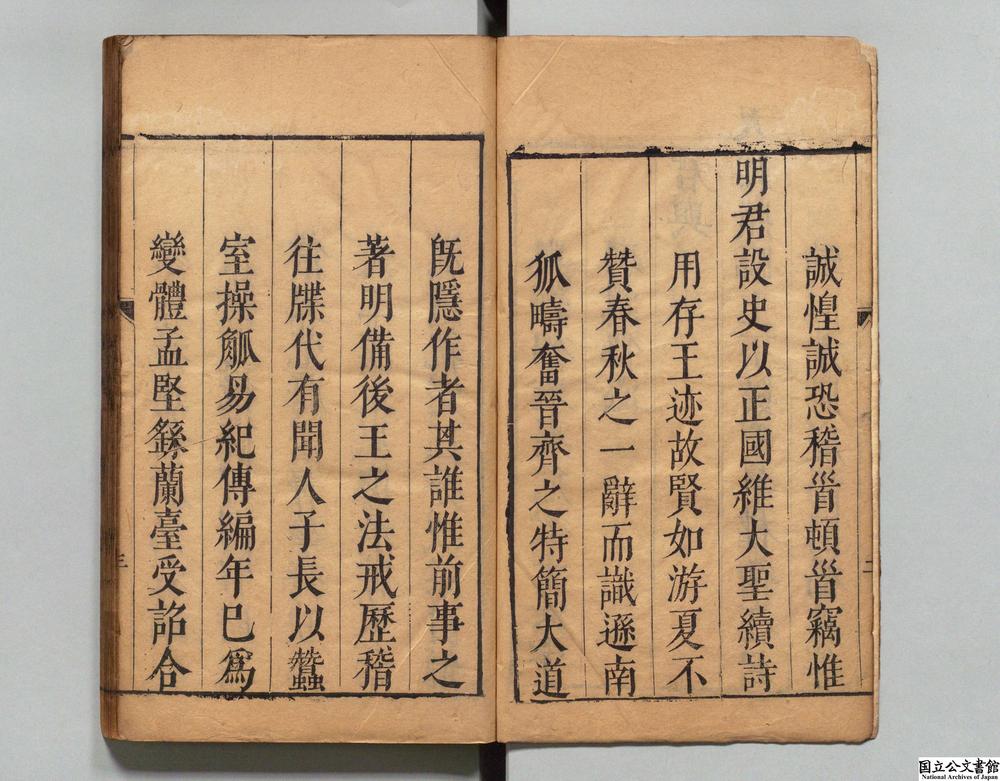 誠惶誠恐稽首頓首竊惟
明君設史以正國維大聖續詩
用存王迹故賢如游夏不
贊春秋之一辭而識遜南
狐疇奮晉齊之特簡大道
二
旣隱作者其誰惟前事之
著明備後王之法戒歷稽
往牒代有聞人子長以蠶
室操觚易紀傳編年已爲
變體孟堅繇蘭臺受詔合
三
国立公文書館
National Archives of Japan